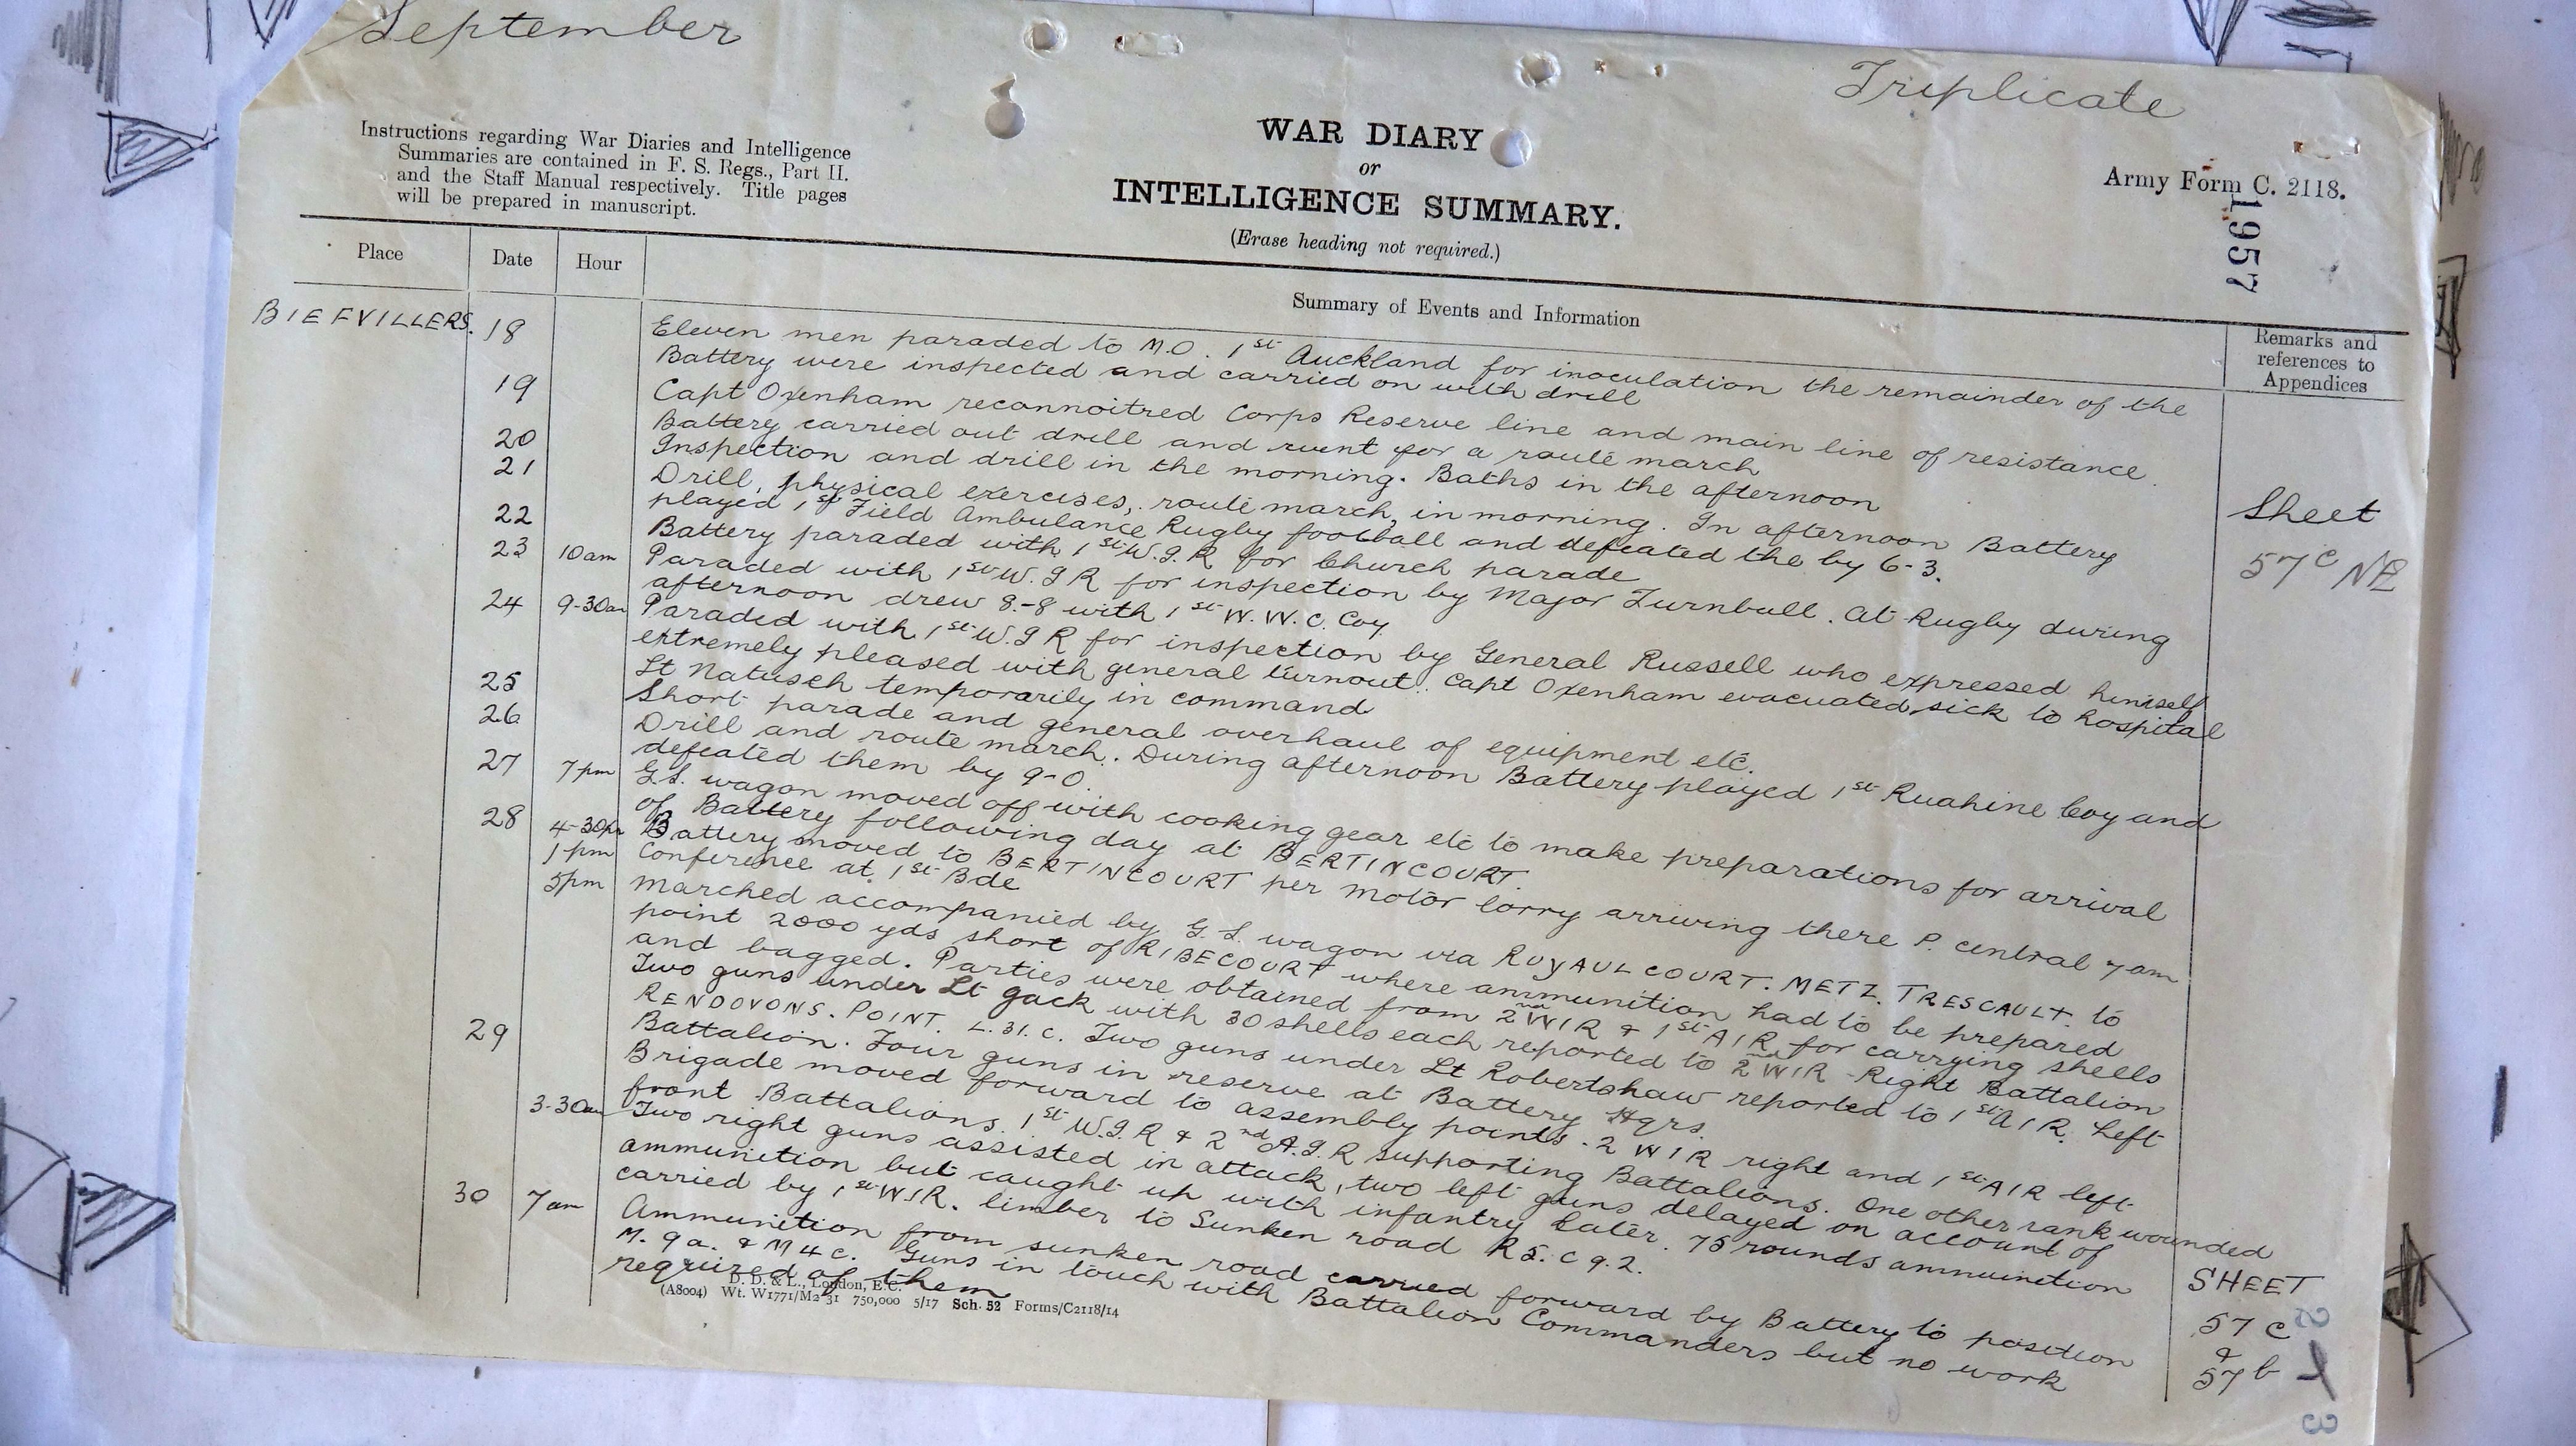 September
Triplicate
Instructions regarding War Diaries and Intelligence
Summaries are contained in F. S. Regs., Part II.
and the Staff Manual respectively. Title pages
will be prepared in manuscript.
WAR DIARY
or
INTELLIGENCE SUMMARY.
(Erase heading not required.)
Army Form C. 2118.
1957
Place Date Hour Summary of Events and Information Remarks and
references to
Appendices
BIEFVILLERS. 18 Eleven men paraded to M.O. 1st Auckland for inoculation the remainder of the
Battery were inspected and carried on with drill
19 Capt Oxenham reconnoitred Corps Reserve line and main line of resistance.
Battery carried out drill and went for a route march
20 Inspection and drill in the morning. Baths in the afternoon
21 Drill, physical exercises, route march, in morning. In afternoon Battery
played 1st Field Ambulance Rugby football and defeated the by 6-3.
22 Battery paraded with 1st W.I.R for Church parade
23 10am Paraded with 1st W.I R for inspection by Major Turnbull. At Rugby during
afternoon drew 8-8 with 1st W.W.C. Coy
24 9-30am Paraded with 1st W.I R for inspection by General Russell who expressed himself
extremely pleased with general turnout. Capt Oxenham evacuated sick to hospital
Lt Natusch temporarily in command
25 Short parade and general overhaul of equipment etc.
26 Drill and route march. During afternoon Battery played 1st Ruahine Coy and
defeated them by 9-0.
27 7pm G.S. wagon moved off with cooking gear etc to make preparations for arrival
of Battery following day at BERTINCOURT.
28 4-30pm Battery moved to BERTINCOURT per motor lorry arriving there P. central 7am
1pm Conference at 1st Bde
5pm Marched accompanied by G.S. wagon via RUYAULCOURT. METZ. TRESCAULT. to
point 2000 yds short of RIBECOURT where ammunition had to be prepared
and bagged. Parties were obtained from 2nd WIR & 1st AIR for carrying shells
Two guns under Lt Jack with 30 shells each reported to 2nd WIR Right Battalion
RENDOVONS. POINT. L.31.C. Two guns under Lt Robertshaw reported to 1st AIR. Left
Battalion. Four guns in reserve at Battery Hqrs.
29 Brigade moved forward to assembly points. 2 WIR right and 1st AIR left
front Battalions. 1st W.I.R & 2nd A.I.R supporting Battalions. One other rank wounded
3-30am Two right guns assisted in attack, two left guns delayed on account of
ammunition but caught up with infantry later. 75 rounds ammunition
carried by 1st WIR. limber to Sunken road R5.c 9.2.
30 7am Ammunition from sunken road carried forward by Battery to position
M.9a. & M4c. Guns in touch with Battalion Commanders but no work
required of them
Sheet
57c NE
SHEET
57c
&
57b
D. D. & L., London, E.C.
(A8004) Wt. W1771/M2 31 750,000 5/17 Sch. 52 Forms/C2118/14